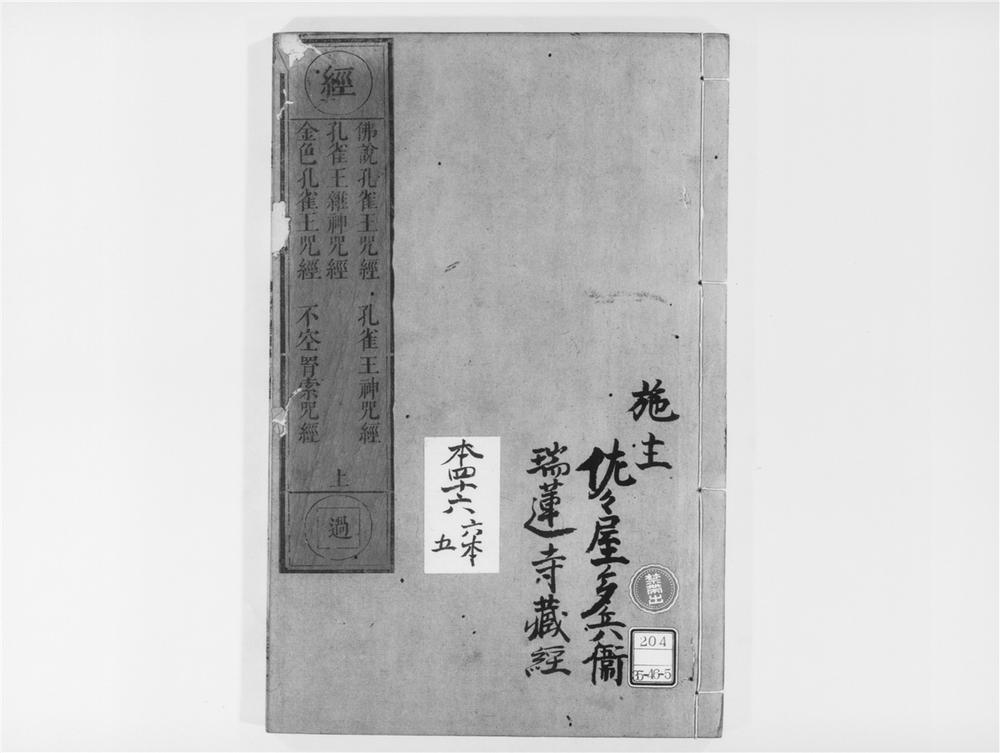 經
佛說孔雀王咒經 孔雀王神咒經
孔雀王雜神咒經
金色孔雀王咒經 不空罥索咒經
上
過
施主
佐々屋多兵衞
瑞蓮寺藏經
本四十六
六本
五
禁帶出
204
35-46-5